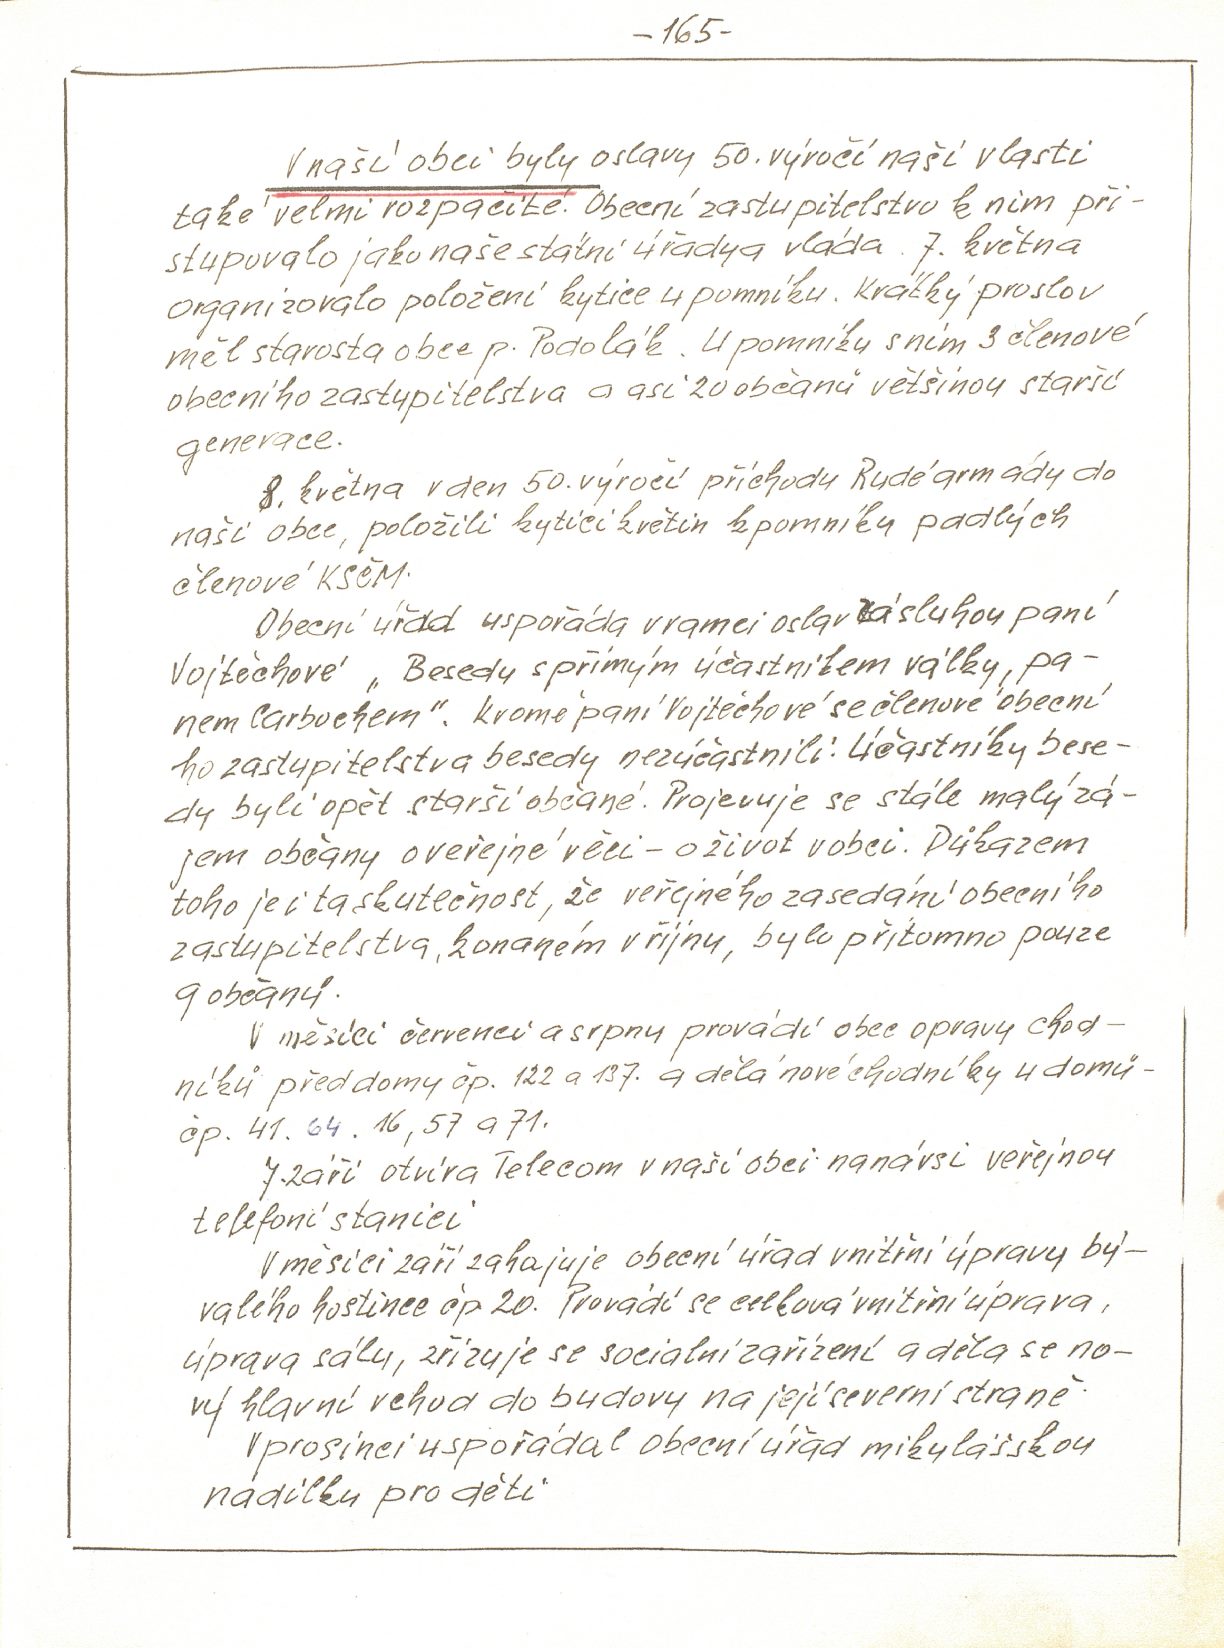 -165-
V naší obci byly oslavy 50. výročí naší vlasti
také velmi rozpačité. Obecní zastupitelstvo k nim při-
stupovalo jako naše státní úřady a vláda. 7. května
organizovalo položení kytice u pomníku. Krátký proslov
měl starosta obce p. Podolák. U pomníku s ním 3 členové
obecního zastupitelstva a asi 20 občanů většinou starší
generace.
8. května v den 50. výročí příchodu Rudé armády do
naší obce, položili kytici květin k pomníku padlých
členové KSČM.
Obecní úřad uspořáda v ramci oslav zásluhou paní
Vojtěchové „Besedu s přímým účastníkem války, pa-
nem Carbochem". Kromě paní Vojtěchové se členové obecní
ho zastupitelstva besedy nezúčastnili. Účastníky bese-
dy byli opět starší občané. Projevuje se stále malý zá-
jem občany o veřejné věci - o život v obci. Důkazem
toho je i ta skutečnost, že veřejného zasedání obecního
zastupitelstva, konaném v říjnu, bylo přítomno pouze
9 občanů.
V měsíci červenci a srpnu provádí obec opravy chod-
níků před domy čp. 122 a 137. a dělá nové chodníky u domů-
čp. 41. 64. 16, 57 a 71.
7. září otvíra Telecom v naší obci na návsi veřejnou
telefoní stanici
V měsíci září zahajuje obecní úřad vnitřní úpravy bý-
valého hostince čp 20. Provádí se celková vnitřní úprava,
úprava sálu, zřizuje se socialní zařízení a děla se no-
vý hlavní vchod do budovy na její severní straně.
V prosinci uspořádal obecní úřad mikulášskou
nadílku pro děti